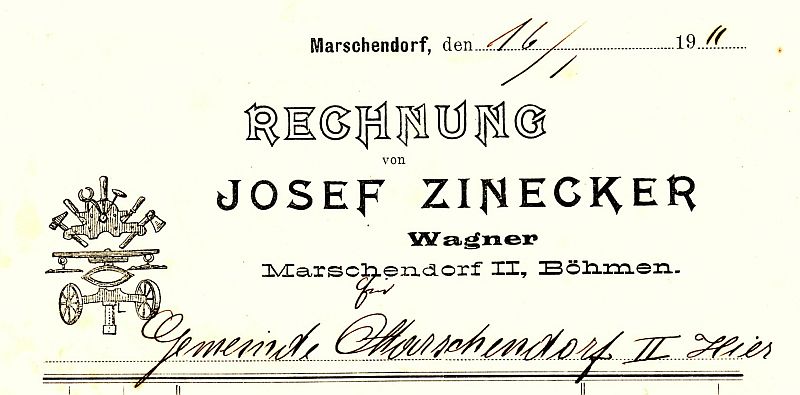 Marschendorf, den 16/1 1911
RECHNUNG
von
JOSEF ZINECKER
Wagner
Marschendorf II, Böhmen.
für
Gemeinde Marschendorf II Hier